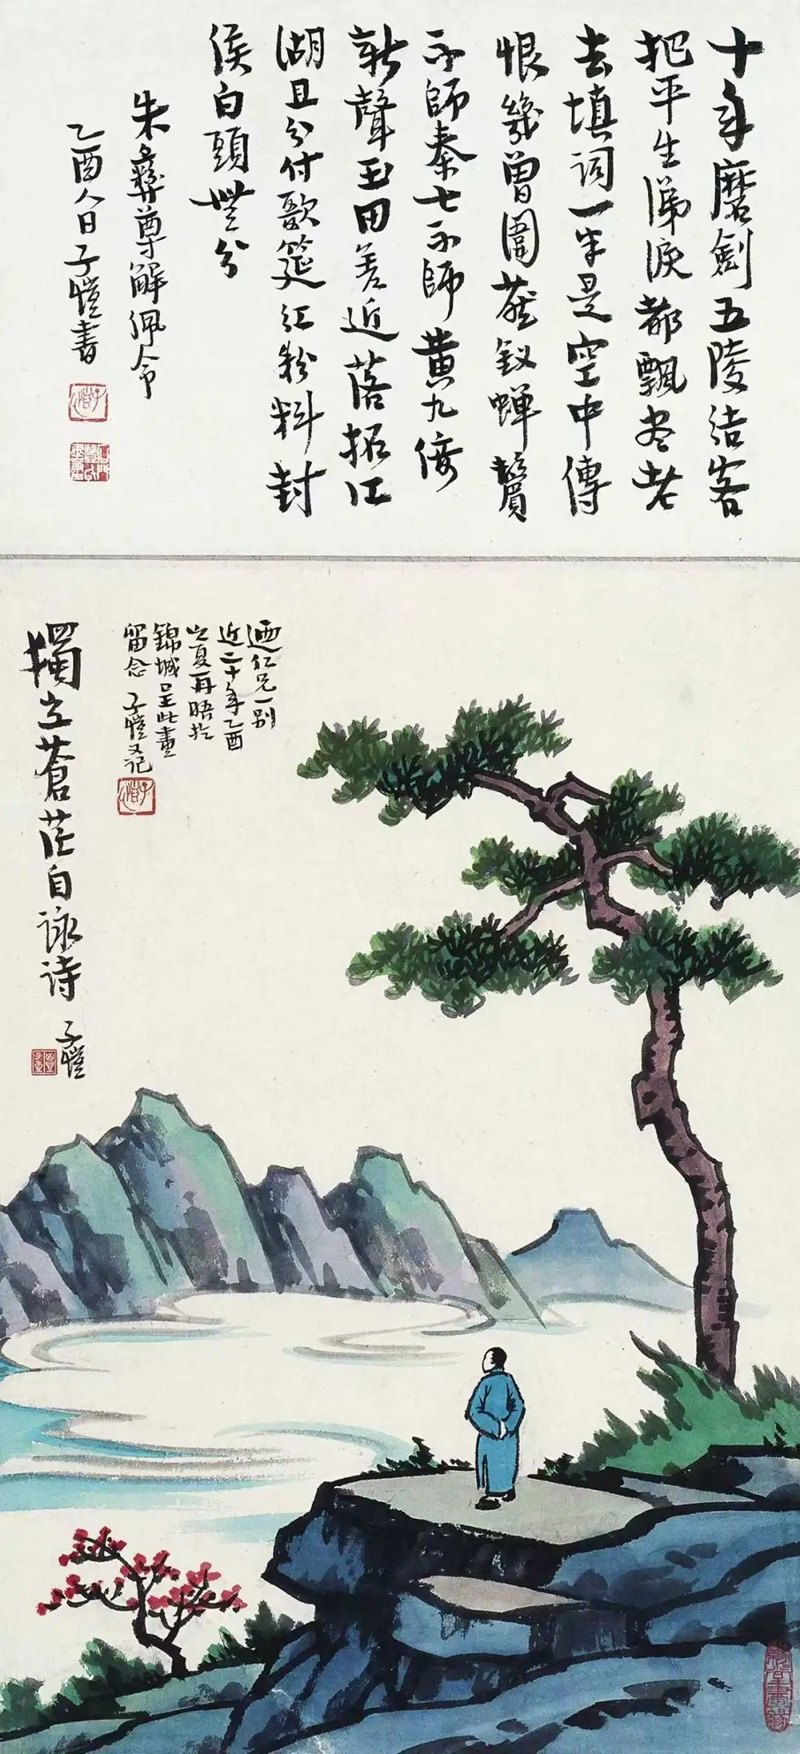 十年磨劍五陵結客
把平生涕淚都飄尽老
去填詞一半是空中傳
恨幾曾圍燕釵蟬鬢
不師秦七不師黄九倚
新聲玉田差近落拓江
湖且分付歌筵紅粉料封
侯白頭無分
朱彝尊解佩令
乙酉人日子愷書
迺仁兄一别
近二十年乙酉
之夏再晤於
錦城呈此畫
留念 子愷又记
獨立蒼茫自詠詩
子愷